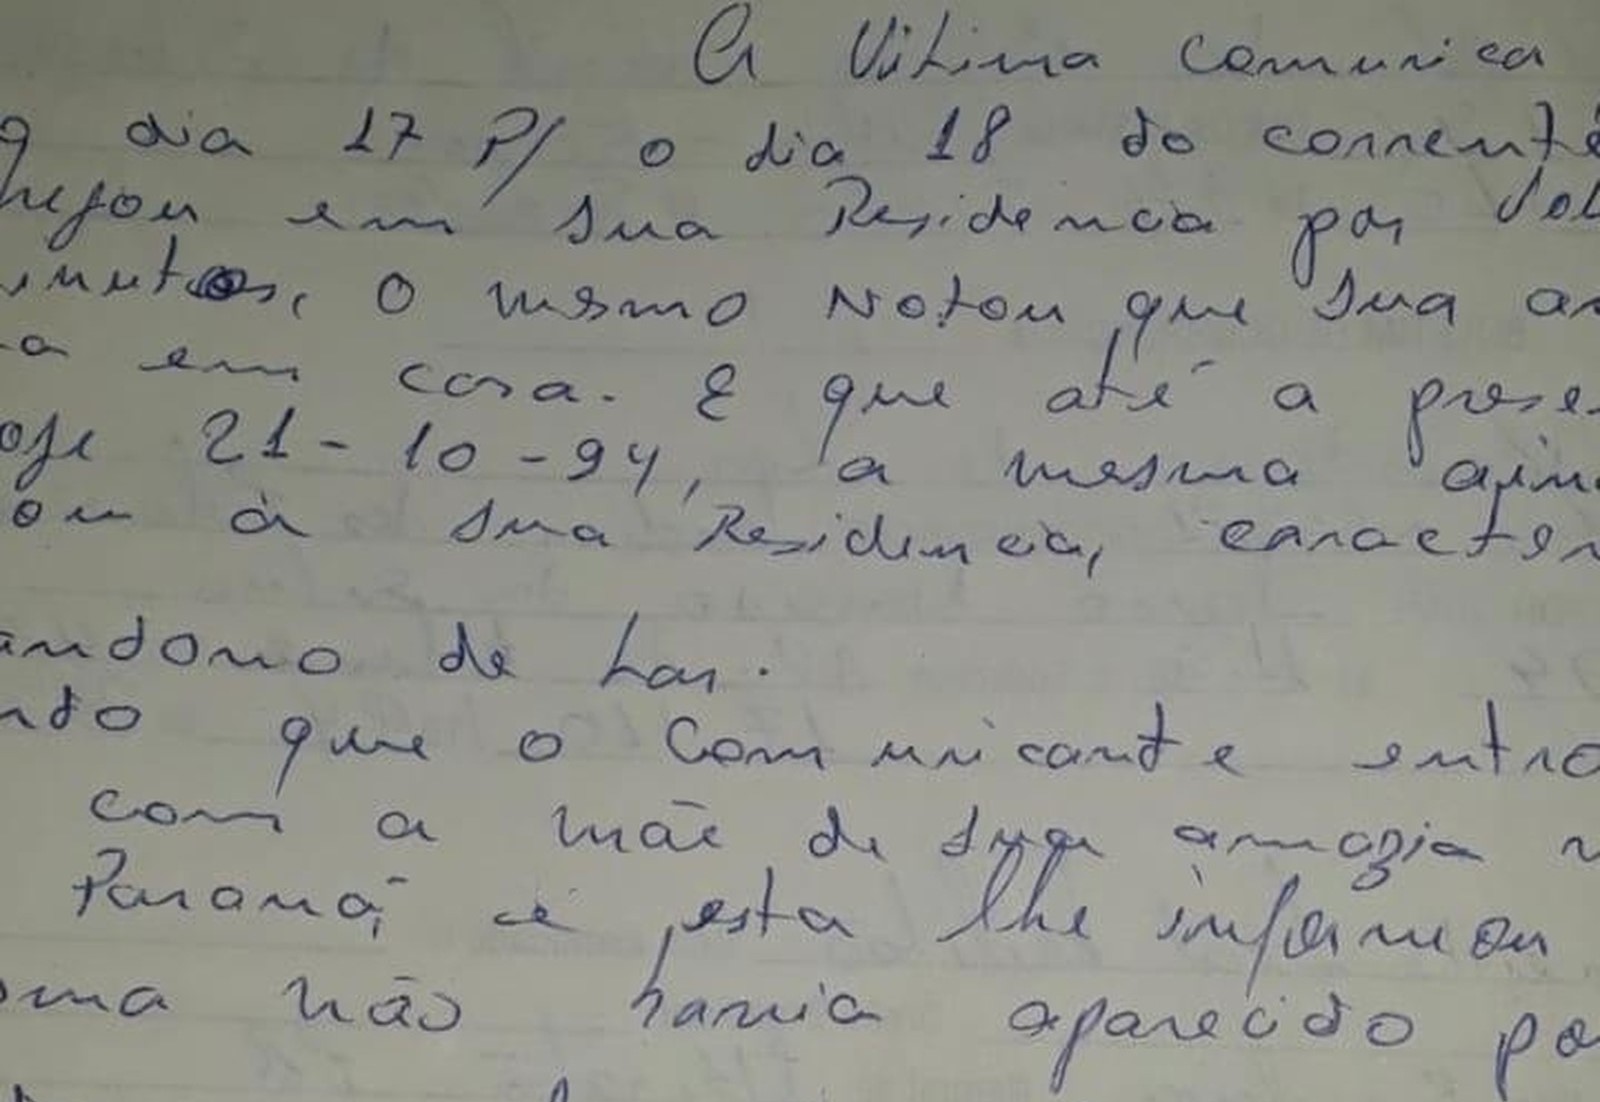 A Vitima comunica
q dia 17 P/ o dia 18 do corrente
hegou em sua Residencia por vol
inutos, o mesmo Notou que sua a
a em casa. E que até a prese
oje 21-10-94, a mesma ain
ou à sua Residencia, caracter
andono de Lar.
ndo que o Comunicante entro
com a mãe de sua amazia
Paraná, e esta lhe informou
sma não havia aparecido po